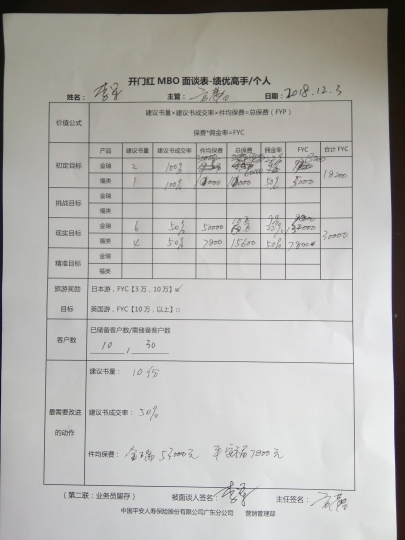 开门红 MBO 面谈表-绩优高手/个人
姓名： 主管： 日期：2018.12.3
价值公式
建议书量×建议书成交率×件均保费=总保费（FYP）
保费*佣金率=FYC
产品 建议书量 建议书成交率 件均保费 总保费 佣金率 FYC 合计 FYC
初定目标
金瑞 2 100%
福类 1 100% 50% 5000
18200
挑战目标
金瑞
福类
现实目标
金瑞 6 50% 50000
福类 4 50% 7800 15600 50% 7800
30000
精准目标
金瑞
福类
旅游奖励
目标
日本游，FYC【3 万，10 万】
英国游，FYC【10 万，以上】□
客户数
已储备客户数/需储备客户数
10 , 30
最需要改进
的动作
建议书量： 10份
建议书成交率：50%
件均保费： 金瑞 50000元 平安福7800元
（第二联：业务员留存） 被面谈人签名： 主任签名：
中国平安人寿保险股份有限公司广东分公司 营销管理部